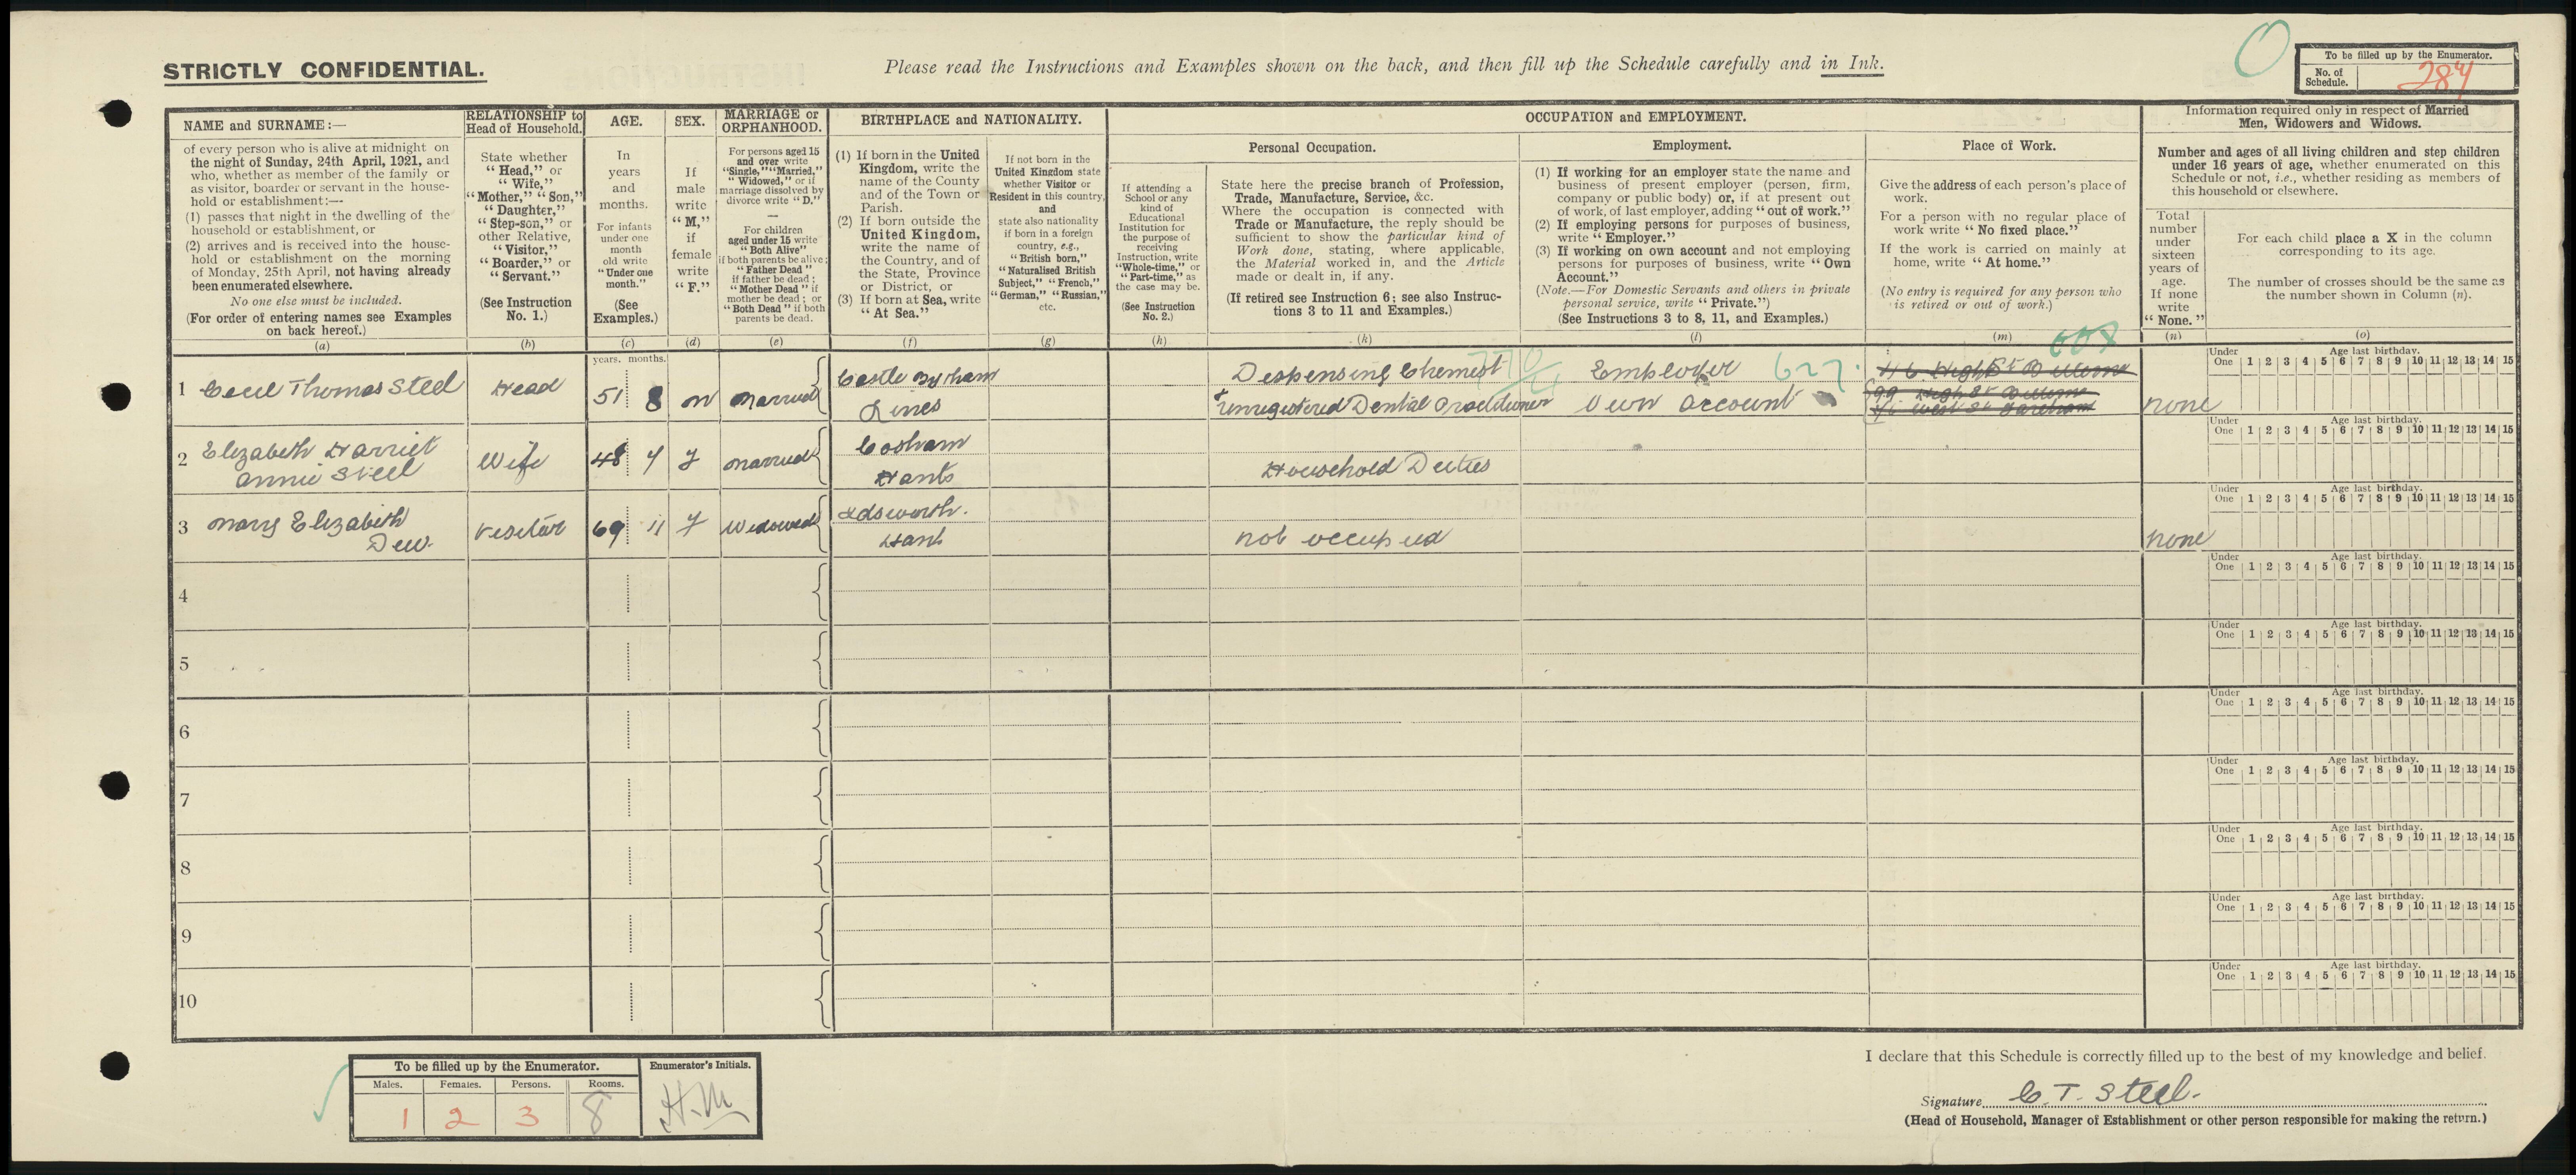 STRICTLY CONFIDENTIAL.
Please read the Instructions and Examples shown on the back, and then fill up the Schedule carefully and in Ink.
To be filled up by the Enumerator.
No. of
Schedule.
284
NAME and SURNAME:—
of every person who is alive at midnight on
the night of Sunday, 24th April, 1921, and
who, whether as member of the family or
as visitor, boarder or servant in the house-
hold or establishment:—
(1) passes that night in the dwelling of the
household or establishment, or
(2) arrives and is received into the house-
hold or establishment on the morning
of Monday, 25th April, not having already
been enumerated elsewhere.
No one else must be included.
(For order of entering names see Examples
on back hereof.)
(a)
RELATIONSHIP to
Head of Household.
State whether
"Head," or
"Wife,"
"Mother," "Son,"
"Daughter,"
"Step-son," or
other Relative,
"Visitor,"
"Boarder," or
"Servant."
(See Instruction
No. 1.)
(b)
AGE.
In
years
and
months.
For infants
under one
month
old write
"Under one
month."
(See
Examples.)
(c)
SEX.
If
male
write
"M,"
if
female
write
"F."
(d)
MARRIAGE or
ORPHANHOOD.
For persons aged 15
and over write
"Single," "Married,"
"Widowed," or if
marriage dissolved by
divorce write "D."
—
For children
aged under 15 write
"Both Alive"
if both parents be alive;
"Father Dead"
if father be dead;
"Mother Dead" if
mother be dead; or
"Both Dead" if both
parents be dead.
(e)
BIRTHPLACE and NATIONALITY.
(1) If born in the United
Kingdom, write the
name of the County
and of the Town or
Parish.
(2) If born outside the
United Kingdom,
write the name of
the Country, and of
the State, Province
or District, or
(3) If born at Sea, write
"At Sea."
(f)
If not born in the
United Kingdom state
whether Visitor or
Resident in this country,
and
state also nationality
if born in a foreign
country, e.g.,
"British born,"
"Naturalised British
Subject," "French,"
"German," "Russian,"
etc.
(g)
OCCUPATION and EMPLOYMENT.
If attending a
School or any
kind of
Educational
Institution for
the purpose of
receiving
Instruction, write
"Whole-time," or
"Part-time," as
the case may be.
(See Instruction
No. 2.)
(h)
Personal Occupation.
State here the precise branch of Profession,
Trade, Manufacture, Service, &c.
Where the occupation is connected with
Trade or Manufacture, the reply should be
sufficient to show the particular kind of
Work done, stating, where applicable,
the Material worked in, and the Article
made or dealt in, if any.
(If retired see Instruction 6; see also Instruc-
tions 3 to 11 and Examples.)
(k)
Employment.
(1) If working for an employer state the name and
business of present employer (person, firm,
company or public body) or, if at present out
of work, of last employer, adding "out of work."
(2) If employing persons for purposes of business,
write "Employer."
(3) If working on own account and not employing
persons for purposes of business, write "Own
Account."
(Note.—For Domestic Servants and others in private
personal service, write "Private.")
(See Instructions 3 to 8, 11, and Examples.)
(l)
Place of Work.
Give the address of each person's place of
work.
For a person with no regular place of
work write "No fixed place."
If the work is carried on mainly at
home, write "At home."
(No entry is required for any person who
is retired or out of work.)
(m)
Information required only in respect of Married
Men, Widowers and Widows.
Number and ages of all living children and step children
under 16 years of age, whether enumerated on this
Schedule or not, i.e., whether residing as members of
this household or elsewhere.
Total
number
under
sixteen
years of
age.
If none
write
"None."
(n)
For each child place a X in the column
corresponding to its age.
The number of crosses should be the same as
the number shown in Column (n).
(o)
years. months.
1 Cecil Thomas Steel Head 51 8 M Married Castle Bytham
Lincs
Dispensing Chemist Employer 627.
+ Unregistered Dental Practitioner Own account
46 High St Bitterne
99 High St Bitterne
West St Fareham
608
none
2 Elizabeth Harriet
Annie Steel
Wife 48 4 F Married Cosham
Hants
Household Duties
3 Mary Elizabeth
Dew.
Visitor 69 11 F Widowed Idsworth.
Hants
not occupied
none
4
5
6
7
8
9
10
Under
One
Age last birthday.
1 2 3 4 5 6 7 8 9 10 11 12 13 14 15
Under
One
Age last birthday.
1 2 3 4 5 6 7 8 9 10 11 12 13 14 15
Under
One
Age last birthday.
1 2 3 4 5 6 7 8 9 10 11 12 13 14 15
Under
One
Age last birthday.
1 2 3 4 5 6 7 8 9 10 11 12 13 14 15
Under
One
Age last birthday.
1 2 3 4 5 6 7 8 9 10 11 12 13 14 15
Under
One
Age last birthday.
1 2 3 4 5 6 7 8 9 10 11 12 13 14 15
Under
One
Age last birthday.
1 2 3 4 5 6 7 8 9 10 11 12 13 14 15
Under
One
Age last birthday.
1 2 3 4 5 6 7 8 9 10 11 12 13 14 15
Under
One
Age last birthday.
1 2 3 4 5 6 7 8 9 10 11 12 13 14 15
Under
One
Age last birthday.
1 2 3 4 5 6 7 8 9 10 11 12 13 14 15
To be filled up by the Enumerator.
Males. Females. Persons. Rooms.
1 2 3 8
Enumerator's Initials.
H.M
I declare that this Schedule is correctly filled up to the best of my knowledge and belief.
Signature C. T. Steel.
(Head of Household, Manager of Establishment or other person responsible for making the return.)